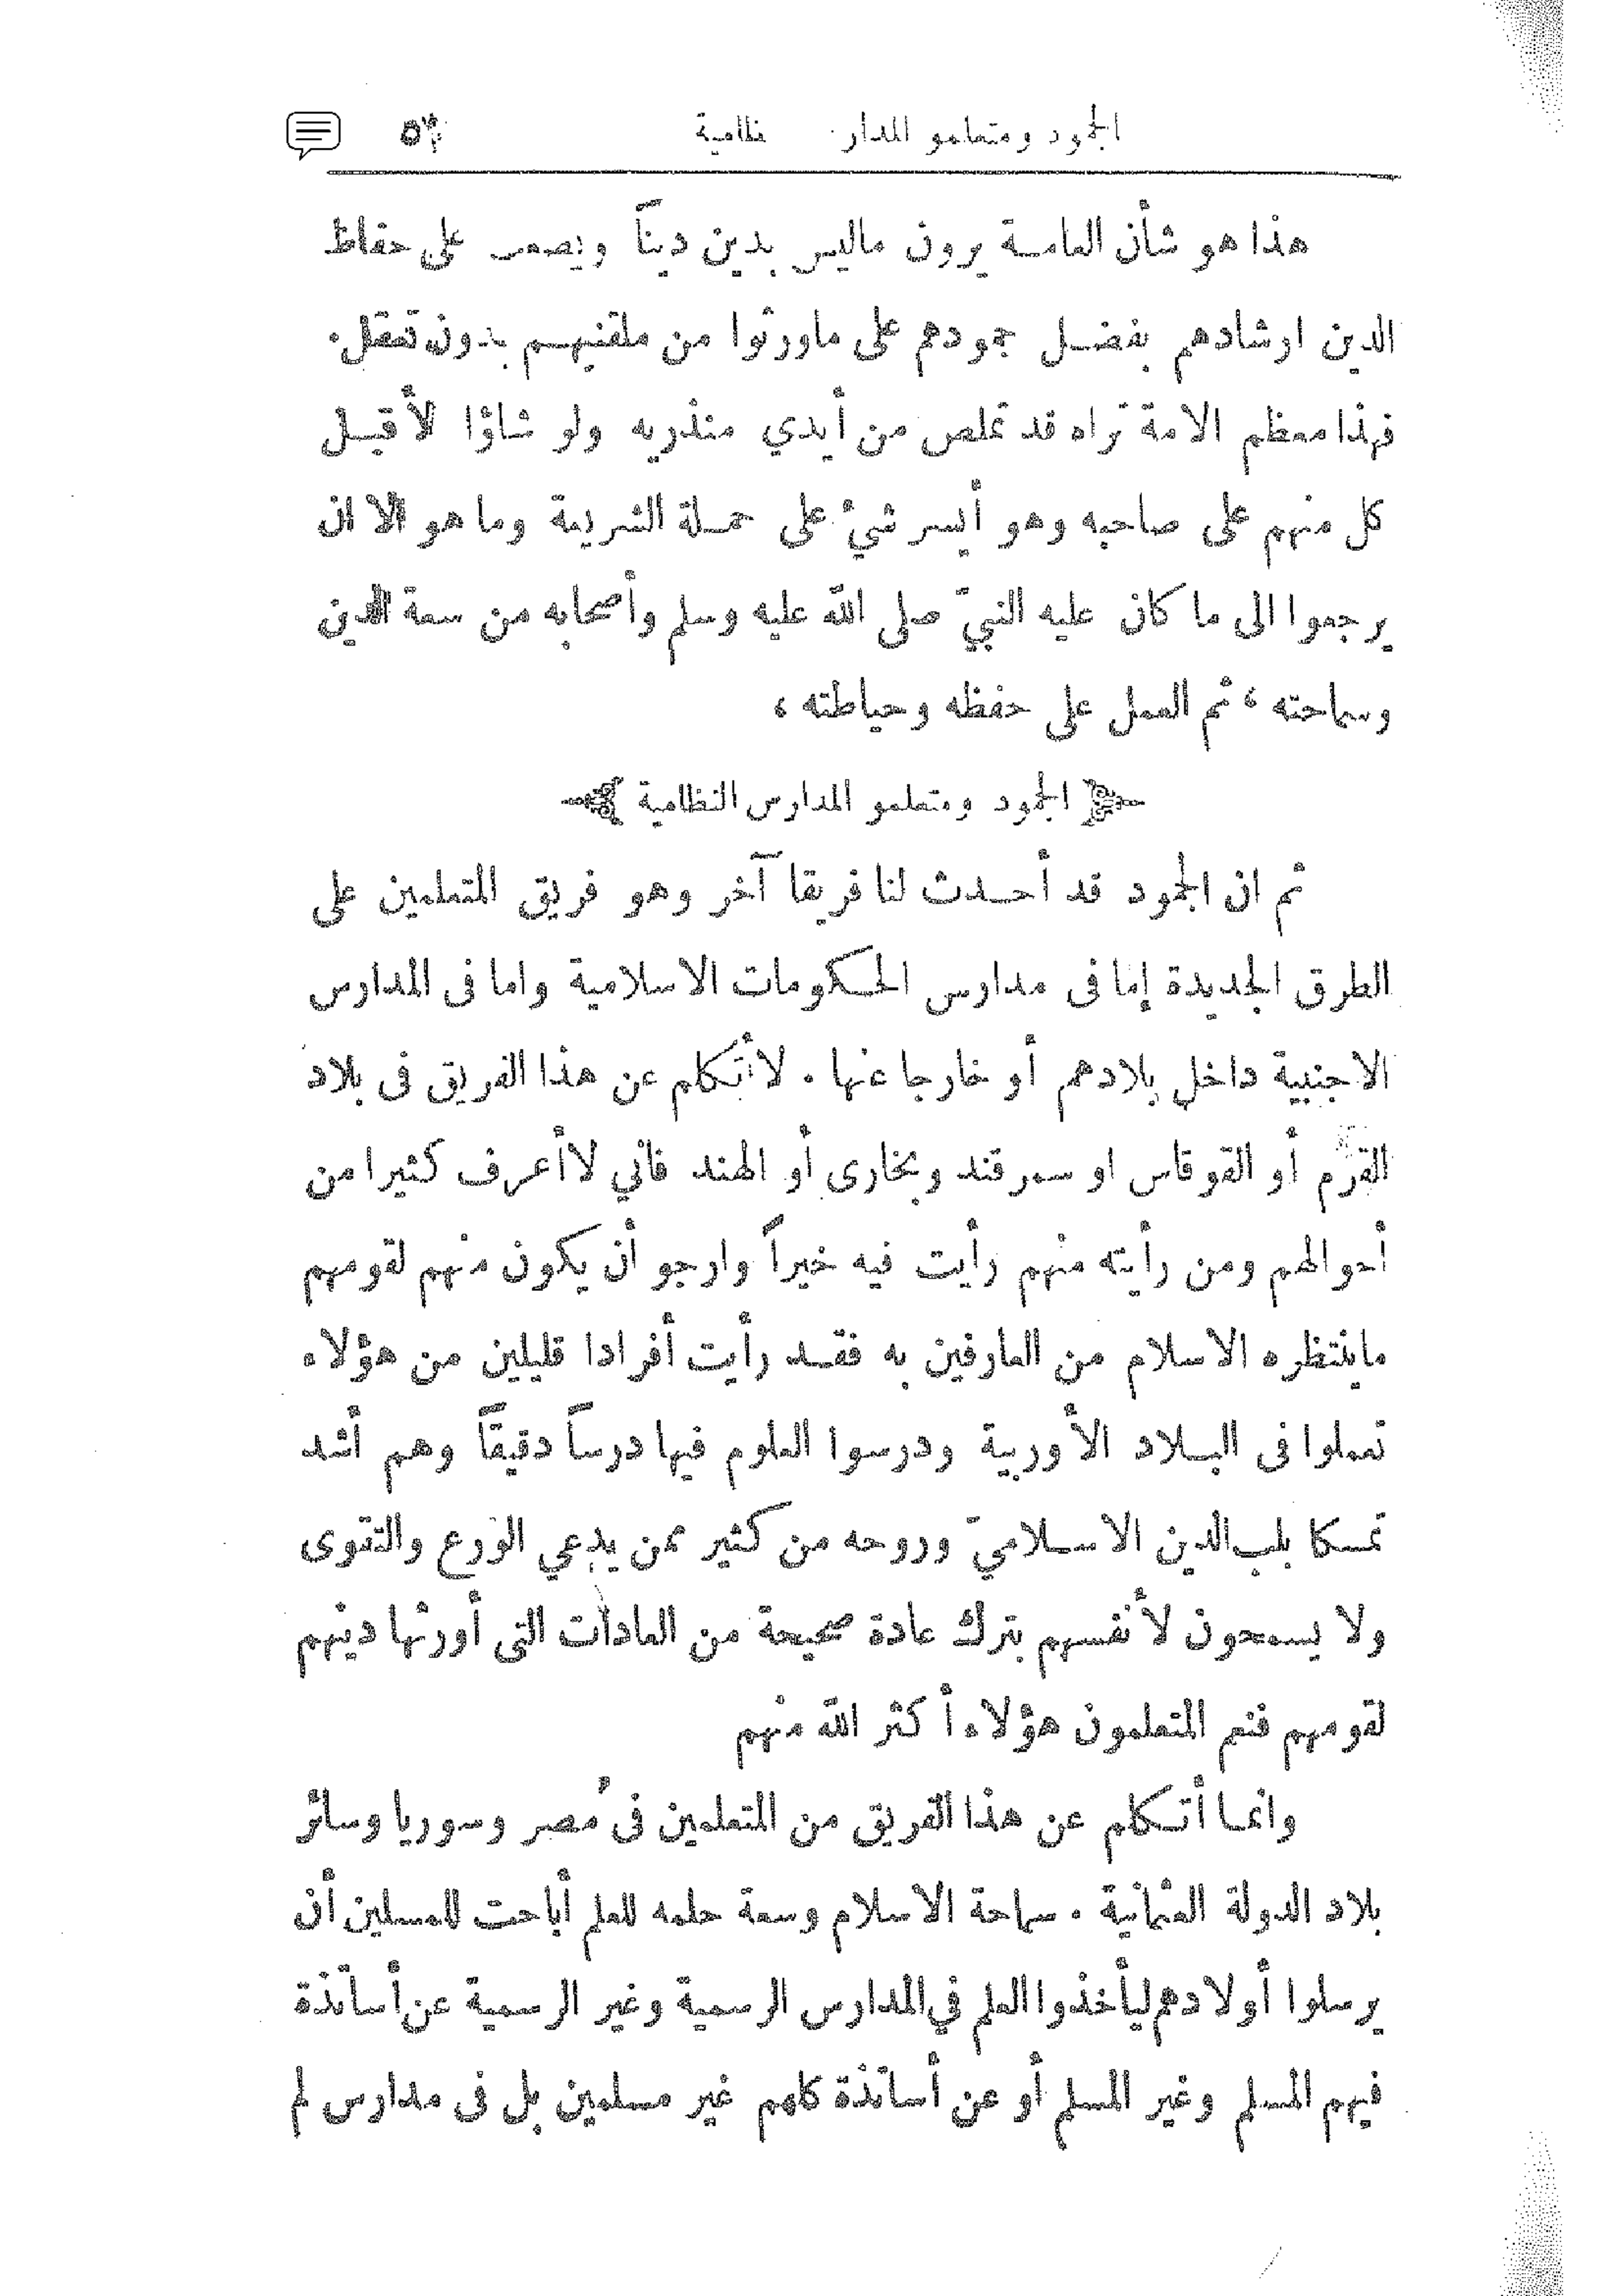 الجمود ومتعلمو المدار نظامية
هذا هو شأن العامة يرون ماليس بدين ديناً ويصعب على حفاظ
الدين ارشادهم بفضل جمودهم على ماورثوا من ملقنيهم بدون تعقل.
فهذا معظم الامة تراه قد تملص من أيدي منذريه ولو شاؤا لأقبل
كل منهم على صاحبه وهو أيسر شيء على حملة الشريعة وما هو الا ان
يرجعوا الى ما كان عليه النبيّ صلى الله عليه وسلم وأصحابه من سعة الدين
وسماحته ، ثم العمل على حفظه وحياطته ،
الجمود ومتعلمو المدارس النظامية
ثم ان الجمود قد أحدث لنا فريقا آخر وهو فريق المتعلمين على
الطرق الجديدة إما فى مدارس الحكومات الاسلامية واما فى المدارس
الاجنبية داخل بلادهم أو خارجا عنها . لا أتكلم عن هذا الفريق فى بلاد
القرم أو القوقاس او سمرقند وبخارى أو الهند فاني لا أعرف كثيرا من
أحوالهم ومن رأيته منهم رأيت فيه خيراً وارجو أن يكون منهم لقومهم
ماينتظره الاسلام من العارفين به فقد رأيت أفرادا قليلين من هؤلاء
تعملوا فى البلاد الأوربية ودرسوا العلوم فيها درساً دقيقاً وهم أشد
تمسكا بلب الدين الاسلاميّ وروحه من كثير ممن يدعي الورع والتقوى
ولا يسمحون لأنفسهم بترك عادة صحيحة من العادات التى أورثها دينهم
لقومهم فنعم المتعلمون هؤلاء أكثر الله منهم
وانما أتكلم عن هذا الفريق من المتعلمين فى مصر وسوريا وسائر
بلاد الدولة العثمانية . سماحة الاسلام وسعة حلمه للعلم أباحت للمسلمين أن
يرسلوا أولادهم ليأخذوا العلم في المدارس الرسمية وغير الرسمية عن أساتذة
فيهم المسلم وغير المسلم أو عن أساتذة كلهم غير مسلمين بل فى مدارس لم